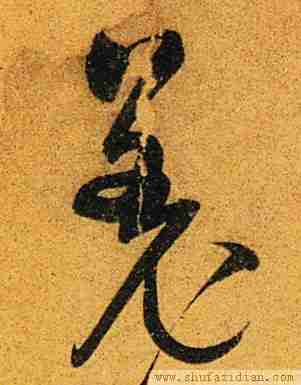 羌
www.shufazidian.com